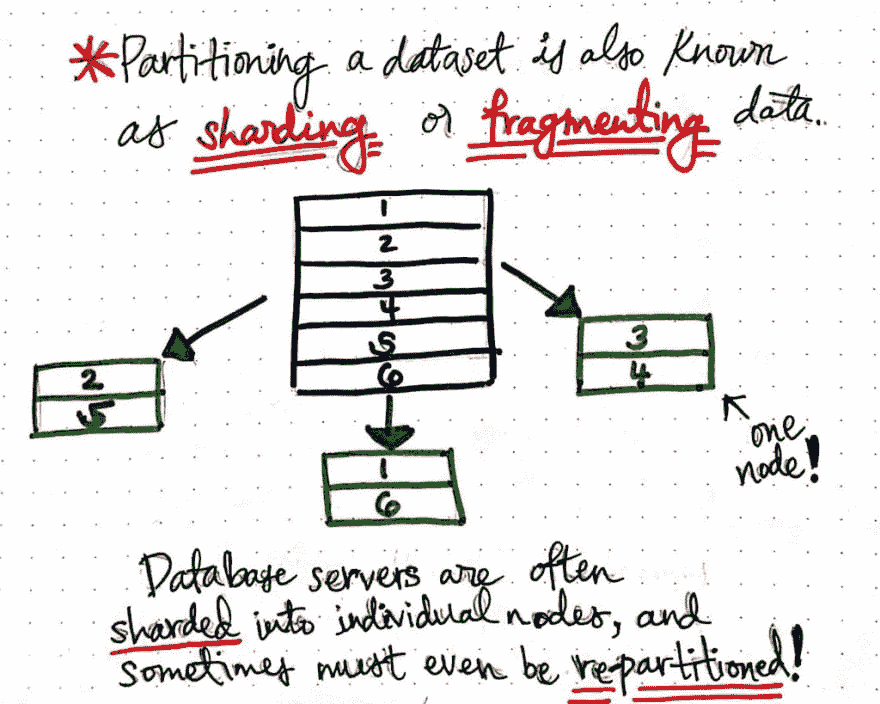 *Partitioning a dataset is also known
as sharding or fragmenting data.
1
2
3
4
5
6
2
5
1
6
3
4
one
node!
Database servers are often
sharded into individual nodes, and
sometimes must even be re-partitioned!